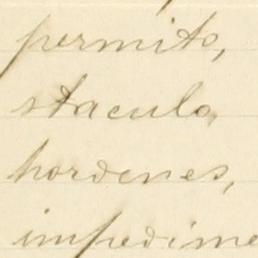 permito,
staculo,
hordenes,
impedime